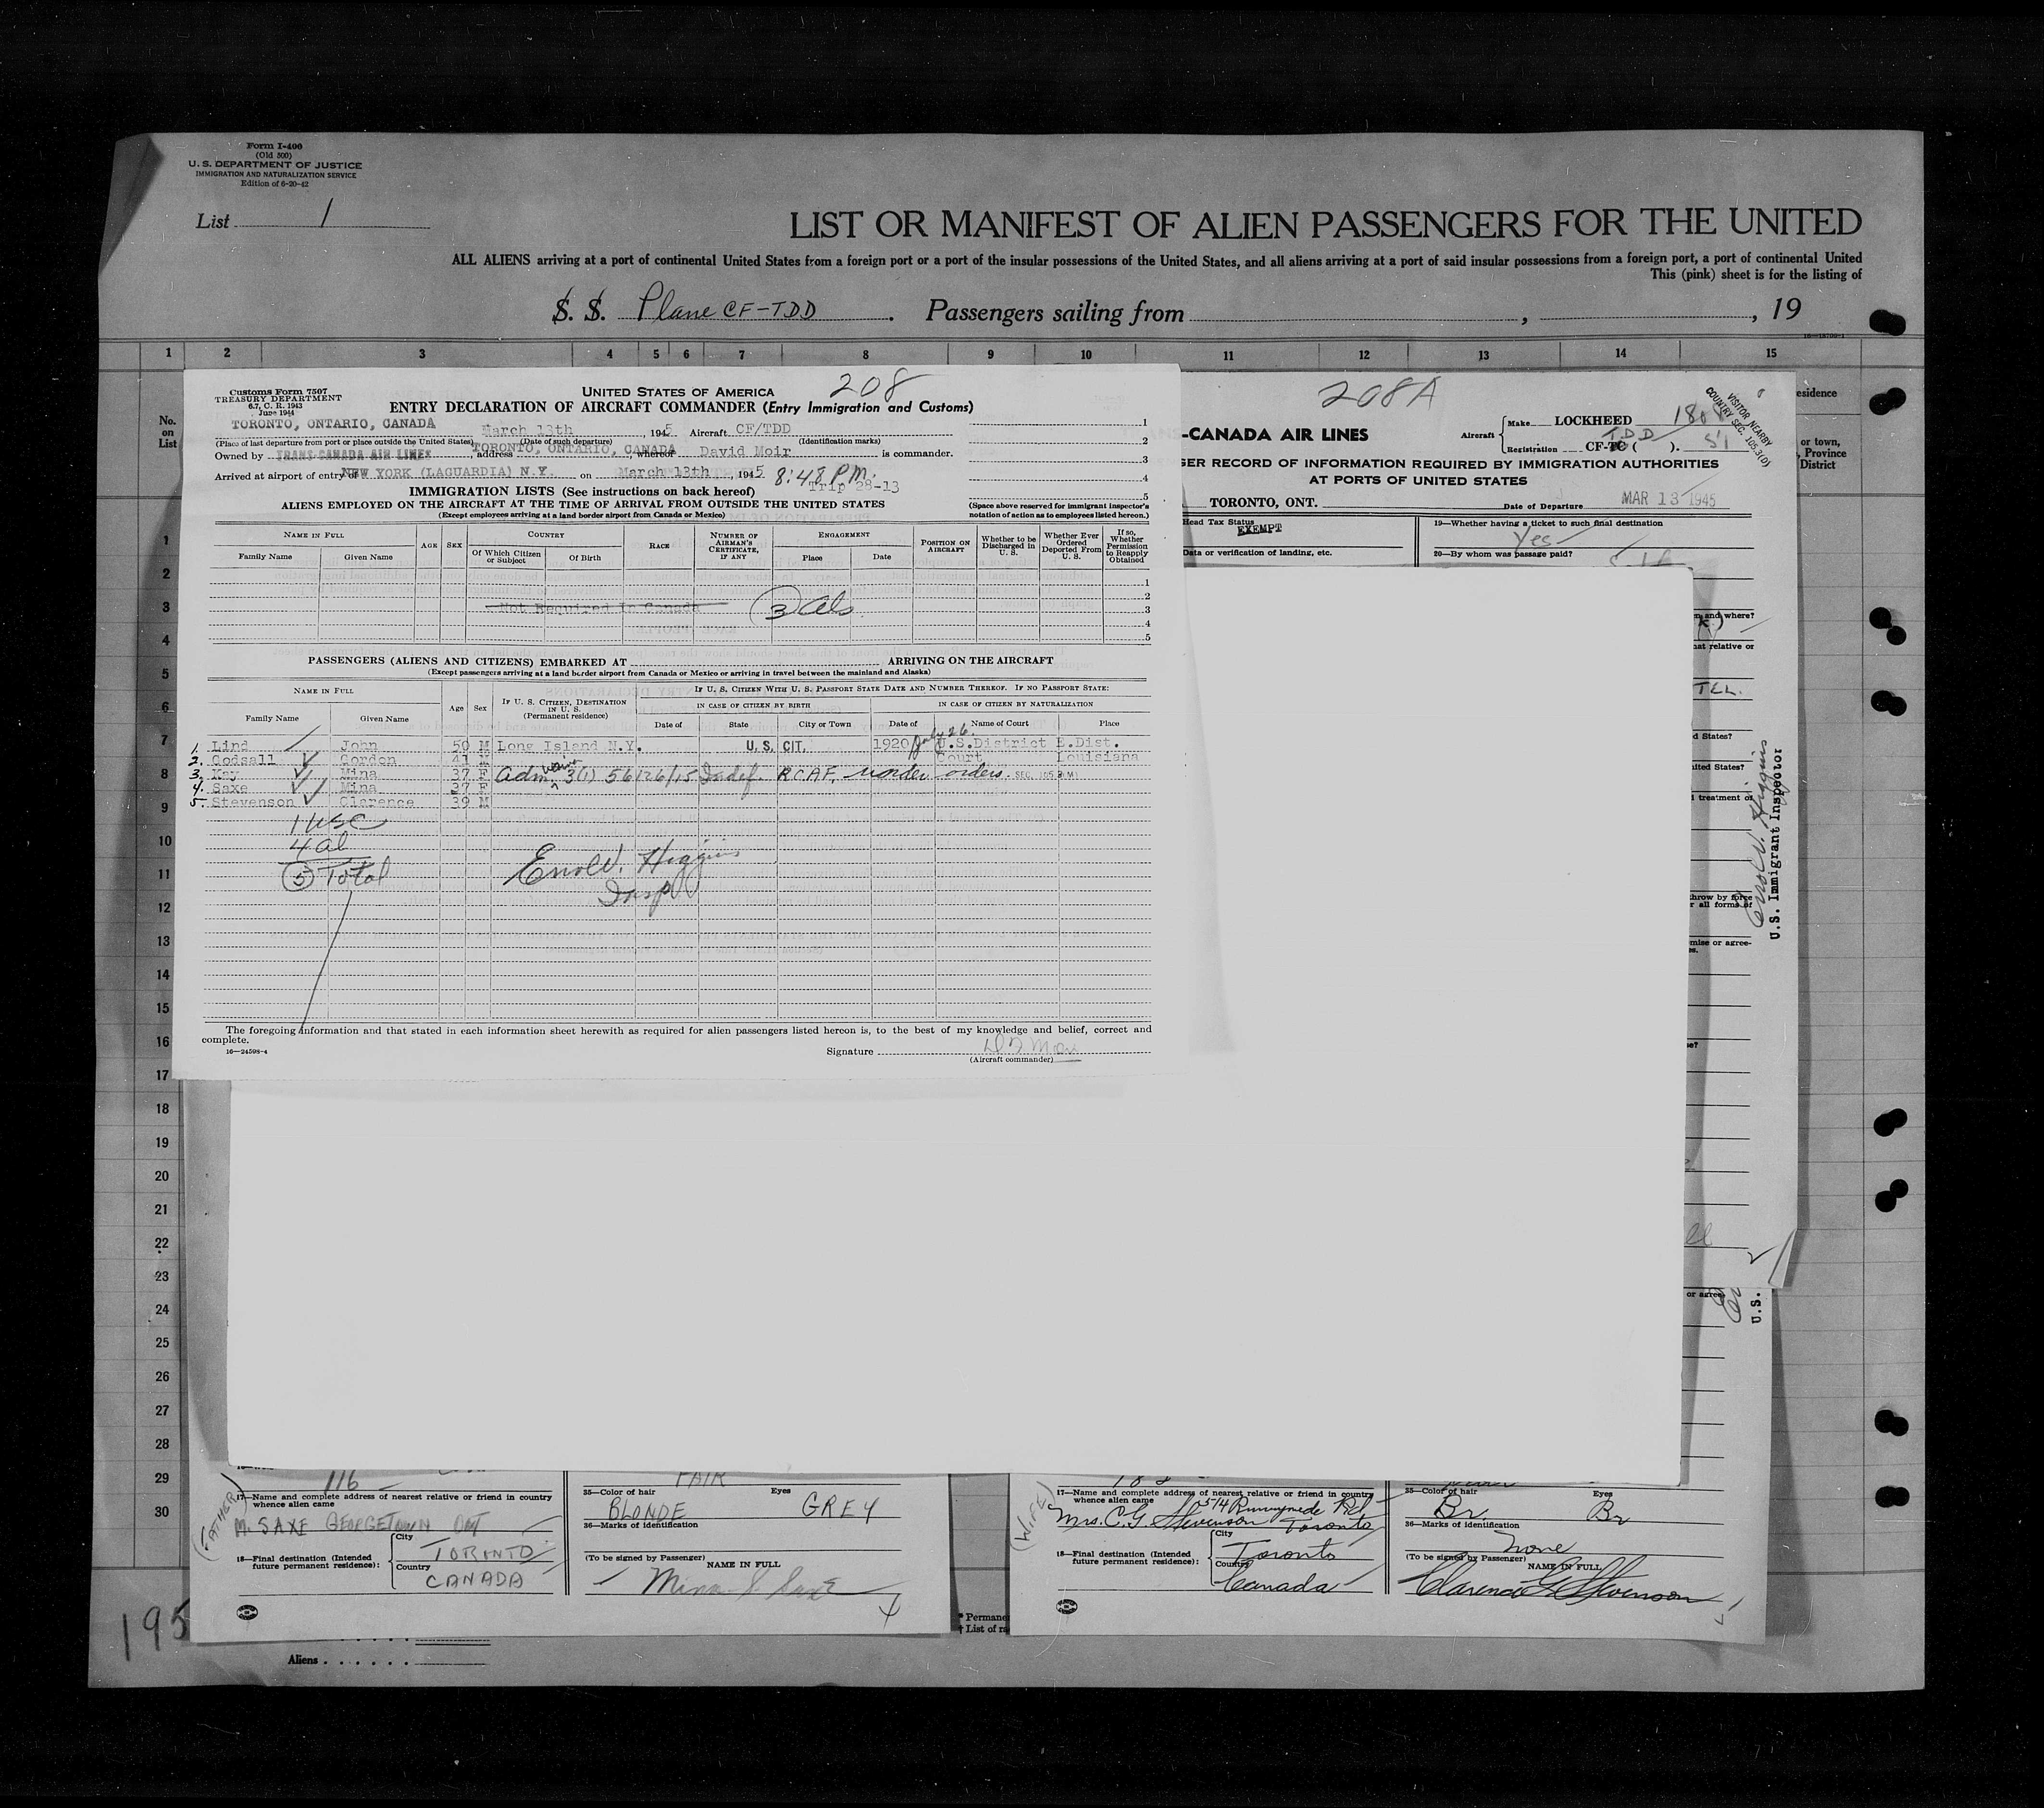 Form I-406
(Old 500)
U. S. DEPARTMENT OF JUSTICE
IMMIGRATION AND NATURALIZATION SERVICE
Edition of 6-20-42
List 1
LIST OR MANIFEST OF ALIEN PASSENGERS FOR THE UNITED
ALL ALIENS arriving at a port of continental United States from a foreign port or a port of the insular possessions of the United States, and all aliens arriving at a port of said insular possessions from a foreign port, a port of continental United
This (pink) sheet is for the listing of
S. S. Plane CF-TDD . Passengers sailing from , , 19
1 2 3 4 5 6 7 8 9 10 11 12 13 14 15
No. on List
Customs Form 7507
TREASURY DEPARTMENT
6.7, C. R. 1943
June 1944
UNITED STATES OF AMERICA 208
ENTRY DECLARATION OF AIRCRAFT COMMANDER (Entry Immigration and Customs)
TORONTO, ONTARIO, CANADA March 13th , 1945 Aircraft CF/TDD
(Place of last departure from port or place outside the United States) (Date of such departure) (Identification marks)
Owned by TRANS-CANADA AIR LINES , address TORONTO, ONTARIO, CANADA , whereof David Moir is commander.
Arrived at airport of entry of NEW YORK (LAGUARDIA) N.Y. on March 13th , 1945 8:48 P.M.
Trip 28-13
IMMIGRATION LISTS (See instructions on back hereof)
ALIENS EMPLOYED ON THE AIRCRAFT AT THE TIME OF ARRIVAL FROM OUTSIDE THE UNITED STATES
(Except employees arriving at a land border airport from Canada or Mexico)
(Space above reserved for immigrant inspector's notation of action as to employees listed hereon.)
NAME IN FULL AGE SEX COUNTRY RACE NUMBER OF AIRMAN'S CERTIFICATE, IF ANY ENGAGEMENT POSITION ON AIRCRAFT Whether to be Discharged in U. S. Whether Ever Ordered Deported From U. S. If so, Whether Permission to Reapply Obtained
Family Name Given Name Of Which Citizen or Subject Of Birth Place Date
Not Required in Canada 3 Als
PASSENGERS (ALIENS AND CITIZENS) EMBARKED AT ARRIVING ON THE AIRCRAFT
(Except passengers arriving at a land border airport from Canada or Mexico or arriving in travel between the mainland and Alaska)
NAME IN FULL Age Sex IF U. S. CITIZEN, DESTINATION IN U. S. (Permanent residence) IF U. S. CITIZEN WITH U. S. PASSPORT STATE DATE AND NUMBER THEREOF. IF NO PASSPORT STATE:
IN CASE OF CITIZEN BY BIRTH IN CASE OF CITIZEN BY NATURALIZATION
Family Name Given Name Date of State City or Town Date of Name of Court Place
1. Lind John 50 M Long Island N.Y. U. S. CIT. 1920 July 26. U.S.District E.Dist.
2. Godsall Gordon 41 M Court Louisiana
3. Kay Mina 37 F Adm. waive 3(1) 56126/15 Indef. RCAF, under orders. SEC. 105.3(M)
4. Saxe Mina 37 F
5. Stevenson Clarence 39 M
1 USC
4 al
5 Total
Errol V. Higgins
Insp
The foregoing information and that stated in each information sheet herewith as required for alien passengers listed hereon is, to the best of my knowledge and belief, correct and
complete.
16—24598-4
Signature
(Aircraft commander)
208A
-CANADA AIR LINES
Aircraft Make LOCKHEED 1808
Registration CF-TC ( ). TDD 51
VISITOR NEARBY COUNTRY SEC. 105.3(O)
GER RECORD OF INFORMATION REQUIRED BY IMMIGRATION AUTHORITIES
AT PORTS OF UNITED STATES
TORONTO, ONT. Date of Departure MAR 13 1945
Head Tax Status EXEMPT
Data or verification of landing, etc.
19—Whether having a ticket to such final destination
Yes
20—By whom was passage paid?
esidence
or town,
, Province
District
n and where?
hat relative or
TEL.
d States?
nited States?
l treatment of
throw by force
r all forms of
mise or agree-
es.
Errol V. Higgins
U.S. Immigrant Inspector
or agree-
U.S.
116
FAIR
(FATHER)
17—Name and complete address of nearest relative or friend in country whence alien came
M. SAXE GEORGETOWN ONT
18—Final destination (Intended future permanent residence):
City TORONTO
Country CANADA
35—Color of hair Eyes
BLONDE GREY
36—Marks of identification
(To be signed by Passenger) NAME IN FULL
Mina S Saxe
(WIFE)
17—Name and complete address of nearest relative or friend in country whence alien came
Mrs. C.G. Stevenson 514 Runnymede Rd Toronto
18—Final destination (Intended future permanent residence):
City Toronto
Country Canada
35—Color of hair Eyes
Br Br
36—Marks of identification
None
(To be signed by Passenger) NAME IN FULL
Clarence G Stevenson
* Permane
† List of ra
195
Aliens